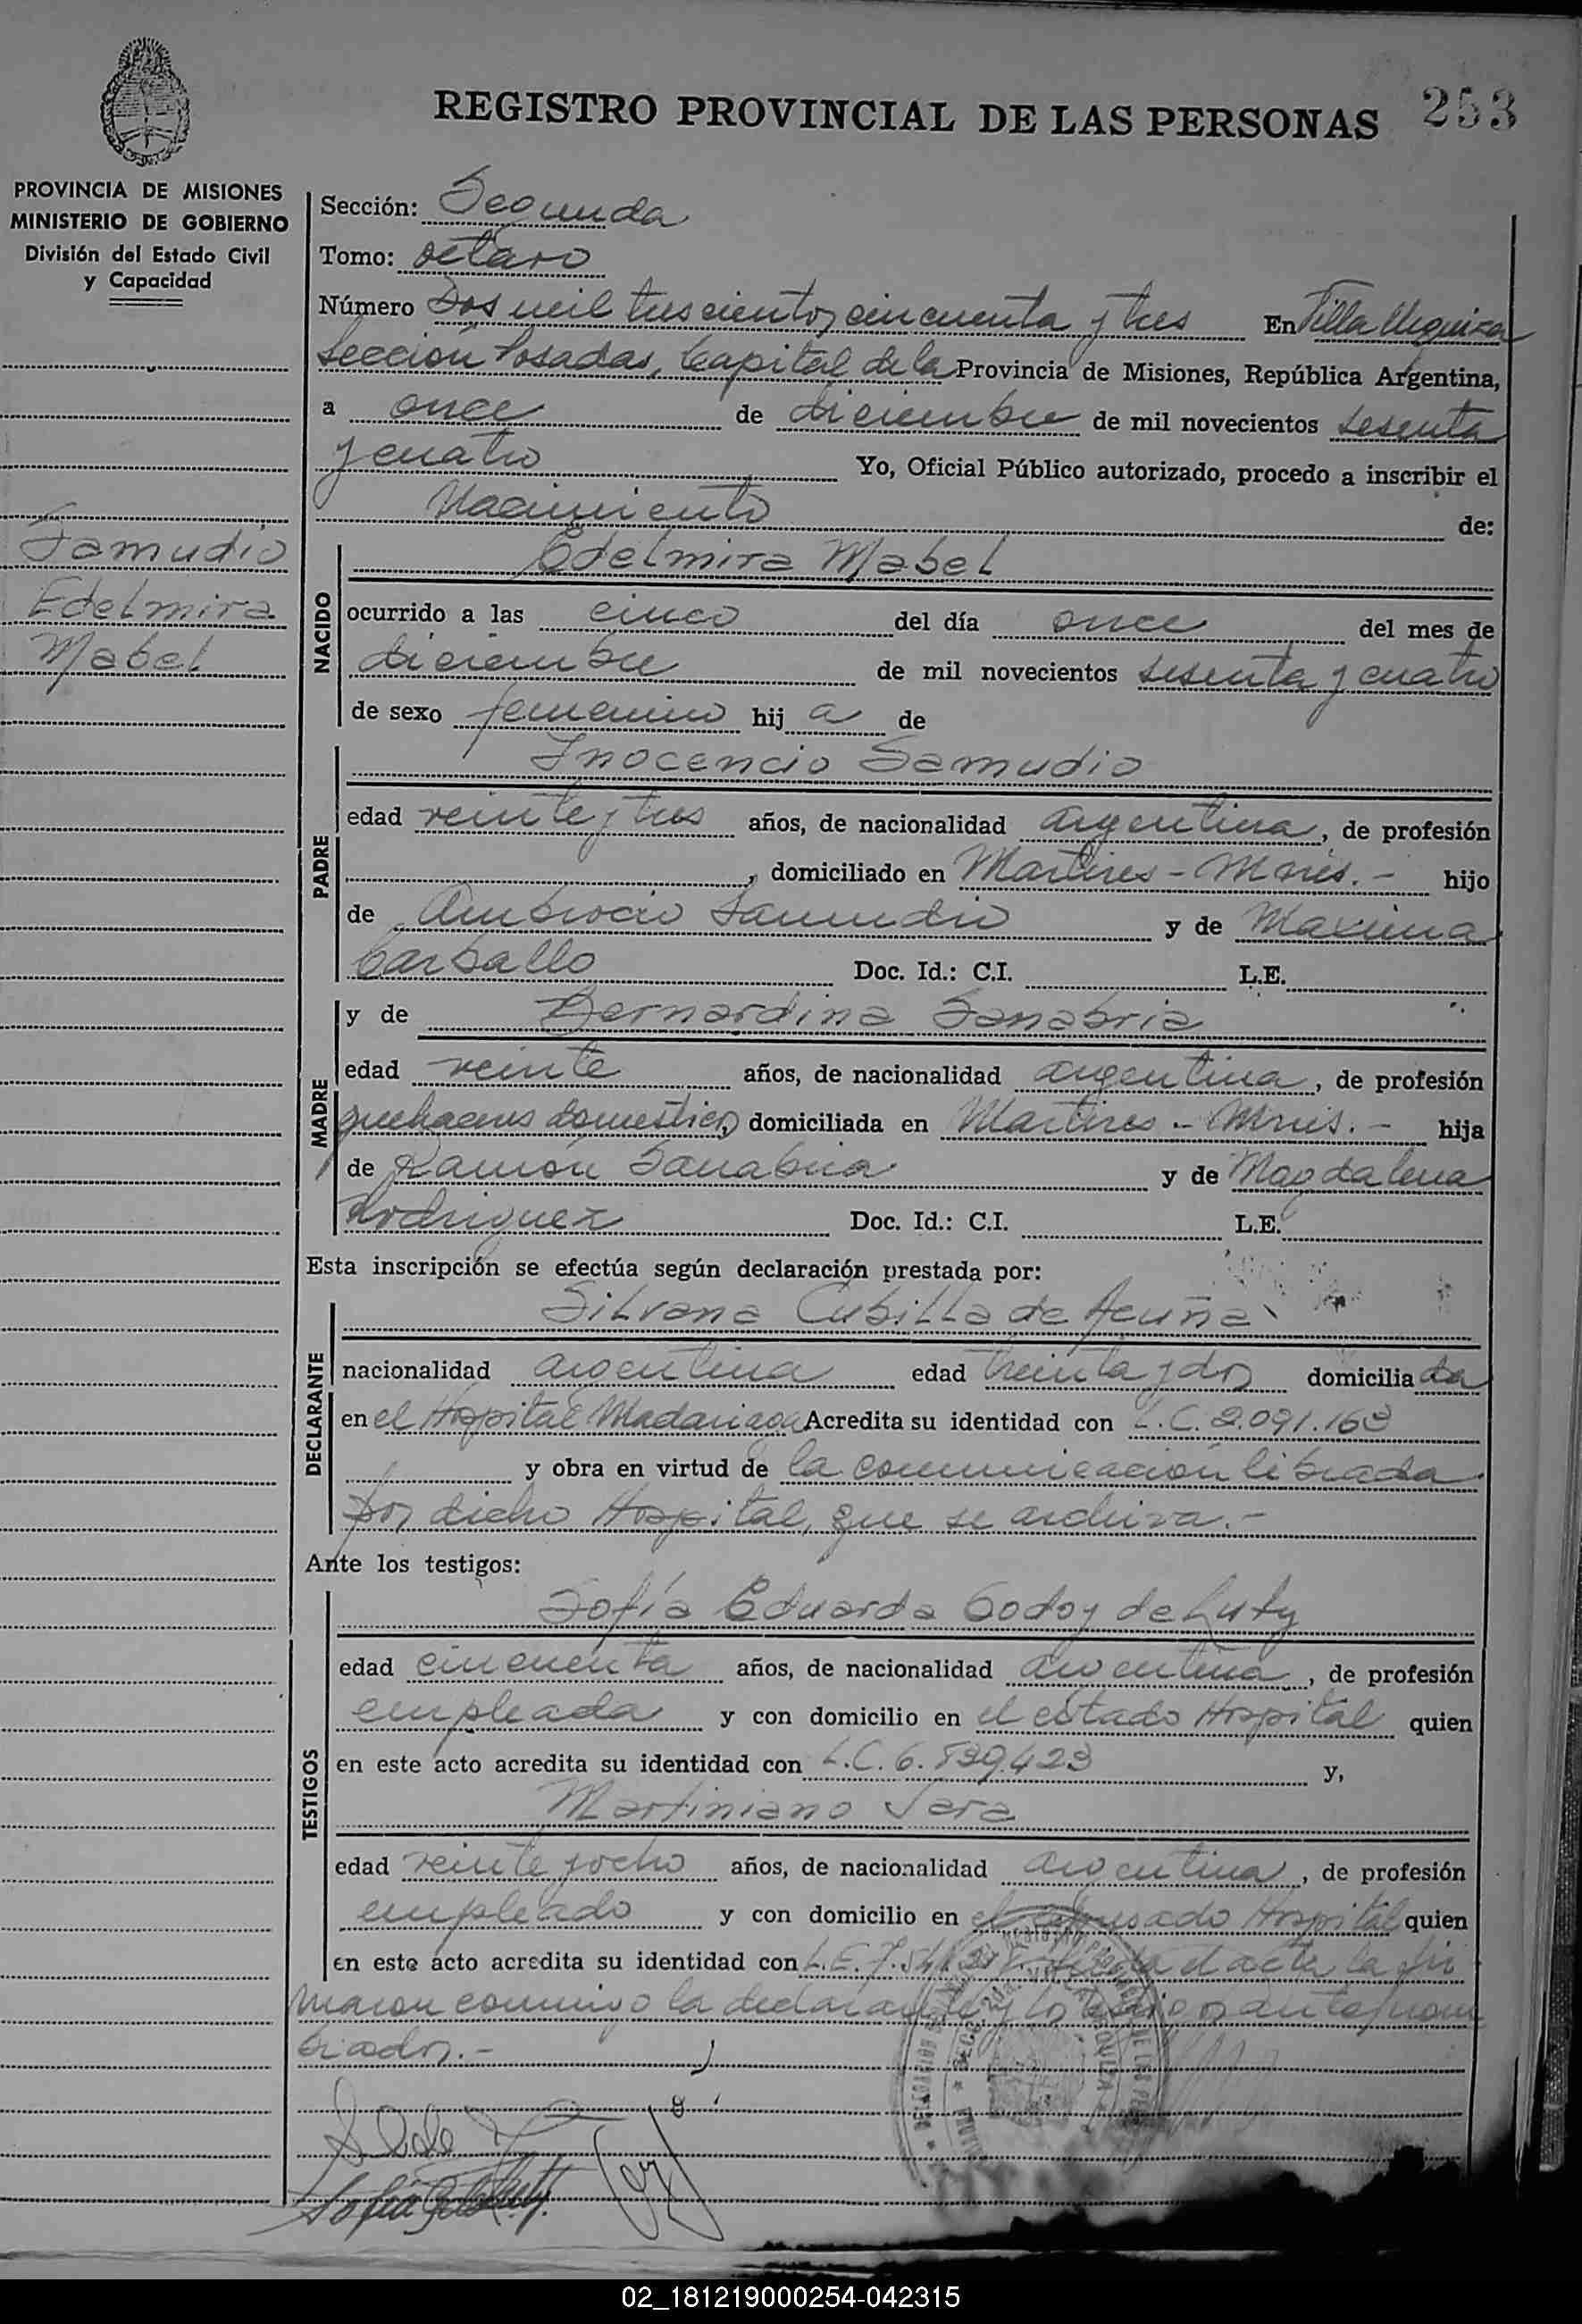 REGISTRO PROVINCIAL DE LAS PERSONAS 253
PROVINCIA DE MISIONES
MINISTERIO DE GOBIERNO
División del Estado Civil
y Capacidad
Samudio
Edelmira
Mabel
Sección: Segunda
Tomo: octavo
Número Dos mil trescientos cincuenta y tres En Villa Urquiza
Sección Posadas, Capital de la Provincia de Misiones, República Argentina,
a once de diciembre de mil novecientos sesenta
y cuatro Yo, Oficial Público autorizado, procedo a inscribir el
Nacimiento de:
NACIDO
Edelmira Mabel
ocurrido a las cinco del día once del mes de
diciembre de mil novecientos sesenta y cuatro
de sexo femenino hij a de
PADRE
Inocencio Samudio
edad veinte y tres años, de nacionalidad argentina, de profesión
, domiciliado en Martires - Mnes. - hijo
de Ambrocio Samudio y de Maxima
Carballo Doc. Id.: C.I. L.E.
MADRE
y de Bernardina Sanabria
edad veinte años, de nacionalidad argentina, de profesión
quehaceres domesticos, domiciliada en Martires - Mnes. - hija
de Ramón Sanabria y de Magdalena
Rodriguez Doc. Id.: C.I. L.E.
Esta inscripción se efectúa según declaración prestada por:
DECLARANTE
Silvana Cubilla de Acuña
nacionalidad argentina edad treinta y dos domicilia da
en el Hospital Madariaga Acredita su identidad con L.C. 2.091.163
y obra en virtud de la comunicación librada
por dicho Hospital, que se archiva. -
Ante los testigos:
TESTIGOS
Sofía Eduarda Godoy de Luty
edad cincuenta años, de nacionalidad argentina, de profesión
empleada y con domicilio en el citado Hospital quien
en este acto acredita su identidad con L.C. 6.839.423 y,
Martiniano Vera
edad veinte y ocho años, de nacionalidad argentina, de profesión
empleado y con domicilio en el expresado Hospital quien
en este acto acredita su identidad con L.E. 7. el acta la fir
maron conmigo la declarante y los testigos antes nom
brados. -
02_181219000254-042315